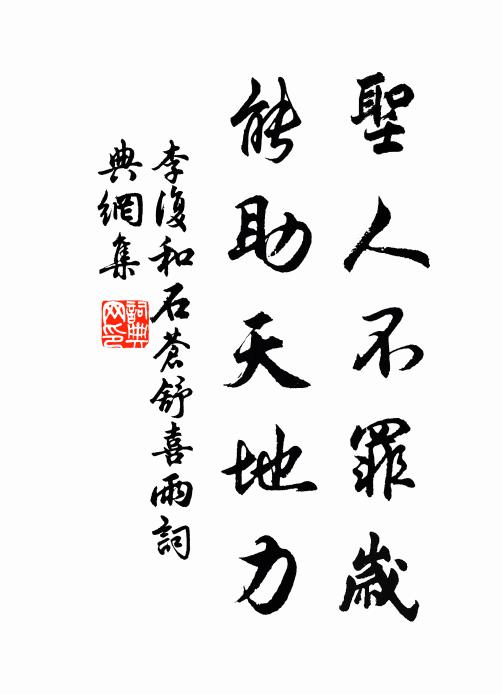 聖人不罪歲
能助天地力
李復和石蒼舒喜雨詞
典網集
詞典
网印